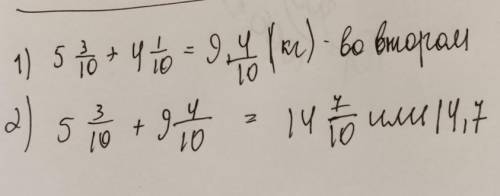 1) 5 3/10 + 4 1/10 = 9 4/10 (кг) - во втором
2) 5 3/10 + 9 4/10 = 14 7/10 или 14,7